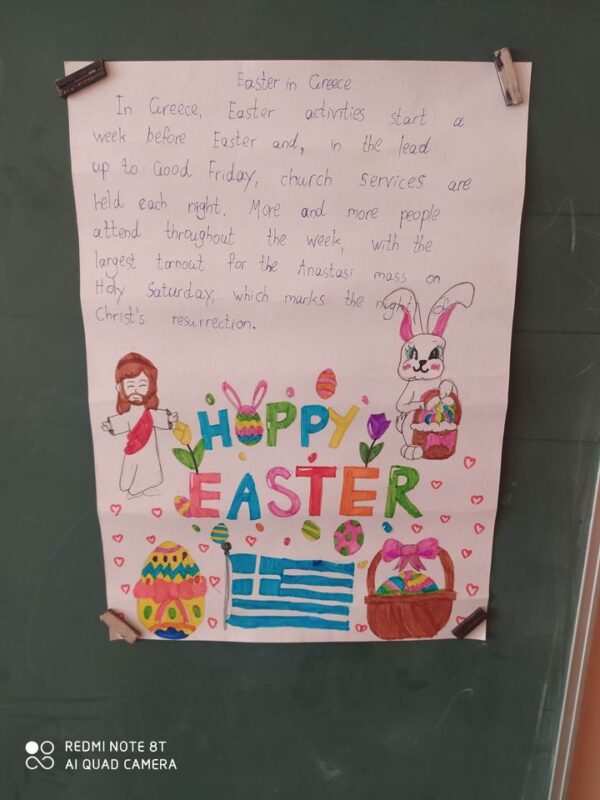 Easter in Greece
In Greece, Easter activities start a
week before Easter and, in the lead
up to Good Friday, church services are
held each night. More and more people
attend throughout the week, with the
largest tornout for the Anastasi mass on
Holy Saturday, which marks the night of
Christ's resurrection.
HAPPY
EASTER
REDMI NOTE 8T
AI QUAD CAMERA